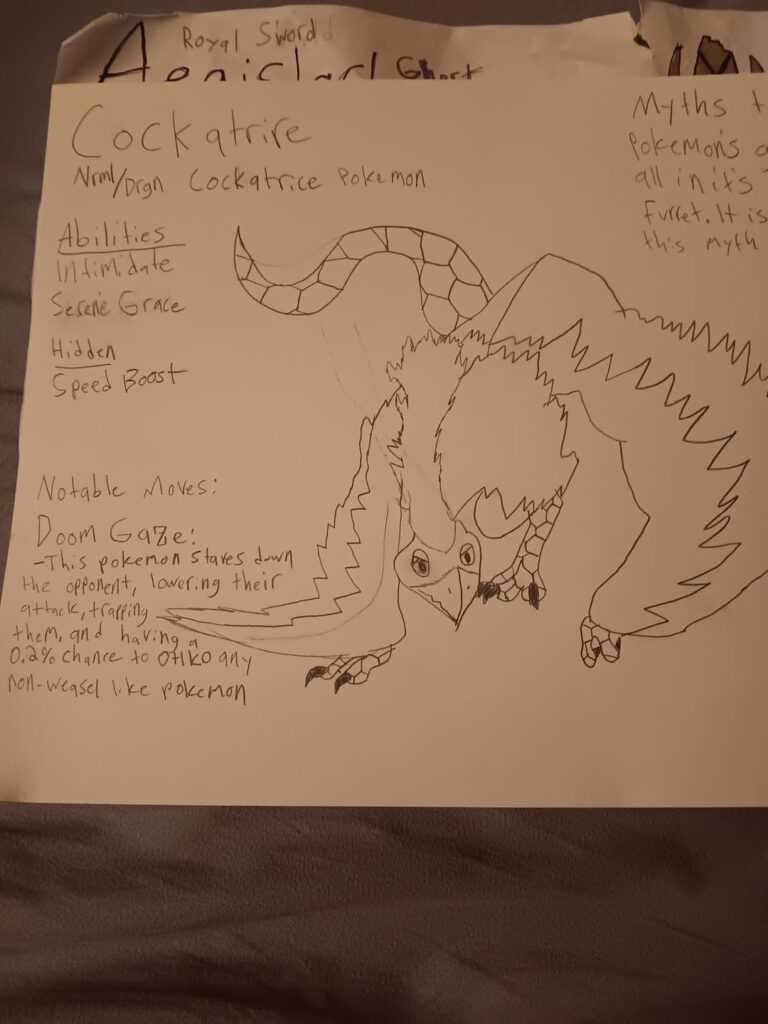 Royal Sword
Aegislash Ghost
Cockatrire
Nrml/Drgn Cockatrice Pokemon
Abilities
Intimidate
Serene Grace
Hidden
Speed Boost
Notable Moves:
Doom Gaze:
-This pokemon stares down
the opponent, lowering their
attack, trapping
them, and having a
0.2% chance to OHKO any
non-weasel like pokemon
Myths t
pokemon's
all in it's
Furret. It is
this myth